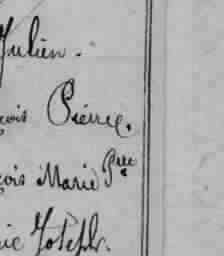 Julien.
çois Pierre.
çois Marie Pre
rie Joseph.